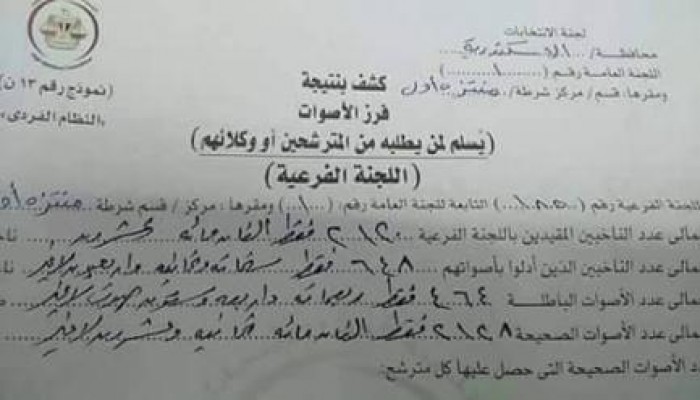 لجنة الانتخابات
محافظة/ الإسكندرية
اللجنة العامة رقم (....١....)
ومقرها: قسم / مركز شرطة / منتزه أول
(نموذج رقم ١٣ ن)
«النظام الفردى»
كشف بنتيجة
فرز الأصوات
(يُسلم لمن يطلبه من المترشحين أو وكلائهم)
(اللجنة الفرعية)
للجنة الفرعية رقم (١٨٥) التابعة للجنة العامة رقم: (١) ومقرها: مركز / قسم شرطة منتزه أول
مالى عدد الناخبين المقيدين باللجنة الفرعية ٢١٢٠ فقط ألفان مائة عشرون
مالى عدد الناخبين الذين أدلوا بأصواتهم ٦٤٨ فقط ستمائة وثمانية وأربعون لا غير
مالى عدد الأصوات الباطلة ٤٦٤ فقط ربعمائة وأربعة وستون لا غير
مالى عدد الأصوات الصحيحة ٢١٢٨ فقط ألفان مائة ثمانية وعشرون لا غير
د الأصوات الصحيحة التى حصل عليها كل مترشح: